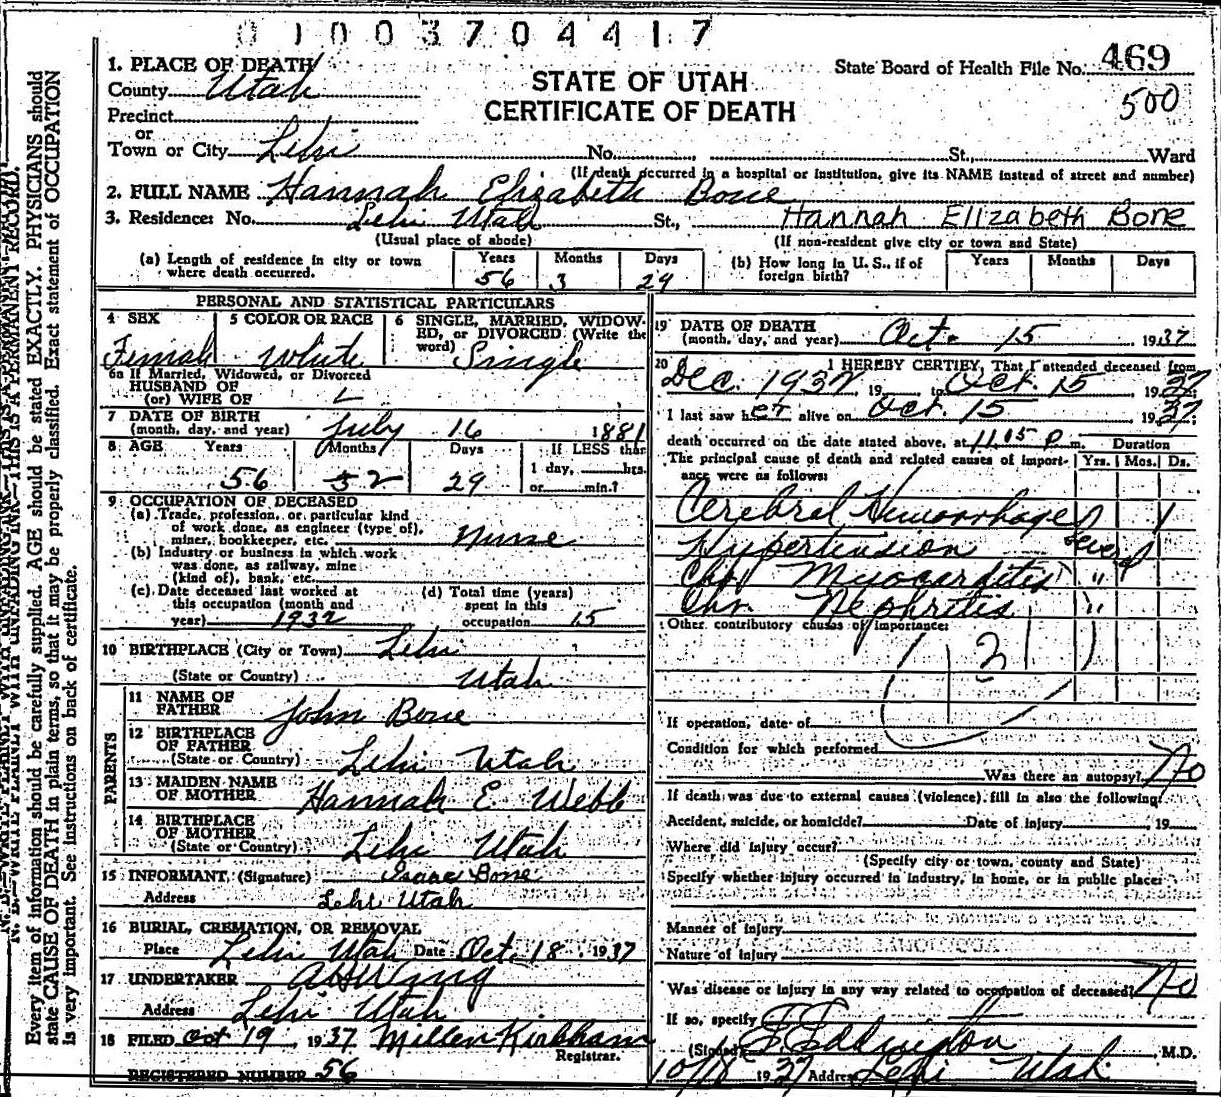 01003704417
1. PLACE OF DEATH
County Utah
STATE OF UTAH
CERTIFICATE OF DEATH
State Board of Health File No. 469
500
Precinct
or
Town or City Lehi No. St., Ward
(If death occurred in a hospital or institution, give its NAME instead of street and number)
2. FULL NAME Hannah Elizabeth Bone
3. Residence: No. Lehi Utah St., Hannah Elizabeth Bone
(Usual place of abode) (If non-resident give city or town and State)
(a) Length of residence in city or town where death occurred. Years 56 Months 3 Days 29
(b) How long in U. S., if of foreign birth? Years Months Days
PERSONAL AND STATISTICAL PARTICULARS
4 SEX Female
5 COLOR OR RACE White
6 SINGLE, MARRIED, WIDOWED, or DIVORCED (Write the word) Single
6a If Married, Widowed, or Divorced
HUSBAND OF
(or) WIFE OF
7 DATE OF BIRTH
(month, day, and year) July 16 1881
8 AGE Years Months Days If LESS than
56 3 2 29 1 day, hrs.
or min.?
9 OCCUPATION OF DECEASED
(a) Trade, profession, or particular kind
of work done, as engineer (type of),
miner, bookkeeper, etc. Nurse
(b) Industry or business in which work
was done, as railway, mine
(kind of), bank, etc.
(c) Date deceased last worked at
this occupation (month and
year) 1932
(d) Total time (years)
spent in this
occupation 15
10 BIRTHPLACE (City or Town) Lehi
(State or Country) Utah
PARENTS
11 NAME OF
FATHER John Bone
12 BIRTHPLACE
OF FATHER
(State or Country) Lehi Utah
13 MAIDEN NAME
OF MOTHER Hannah E. Webb
14 BIRTHPLACE
OF MOTHER
(State or Country) Lehi Utah
15 INFORMANT, (Signature) Isaac Bone
Address Lehi Utah
16 BURIAL, CREMATION, OR REMOVAL
Place Lehi Utah Date Oct. 18, 1937
17 UNDERTAKER
Address Lehi Utah
18 FILED Oct 19, 1937 Millen Kirkham
Registrar.
REGISTERED NUMBER 56
19 DATE OF DEATH
(month, day, and year) Oct. 15 1937
20 I HEREBY CERTIFY, That I attended deceased from
Dec. 1932, 19 to Oct. 15 1937
I last saw her alive on Oct 15 1937
death occurred on the date stated above, at 11.05 P m. Duration
The principal cause of death and related causes of importance were as follows: Yrs. Mos. Ds.
Cerebral Hemorrhage 1
Hypertension several
Chr Myocarditis "
Chr. Nephritis "
Other contributory causes of importance:
If operation, date of
Condition for which performed
Was there an autopsy? No
If death was due to external causes (violence) fill in also the following:
Accident, suicide, or homicide? Date of injury, 19
Where did injury occur?
(Specify city or town, county and State)
Specify whether injury occurred in industry, in home, or in public place:
Manner of injury
Nature of injury
Was disease or injury in any way related to occupation of deceased? No
If so, specify
(Signed) Eddington, M.D.
10/18 1937 Address Lehi Utah
Every item of information should be carefully supplied. AGE should be stated EXACTLY. PHYSICIANS should
state CAUSE OF DEATH in plain terms, so that it may be properly classified. Exact statement of OCCUPATION
is very important. See instructions on back of certificate.